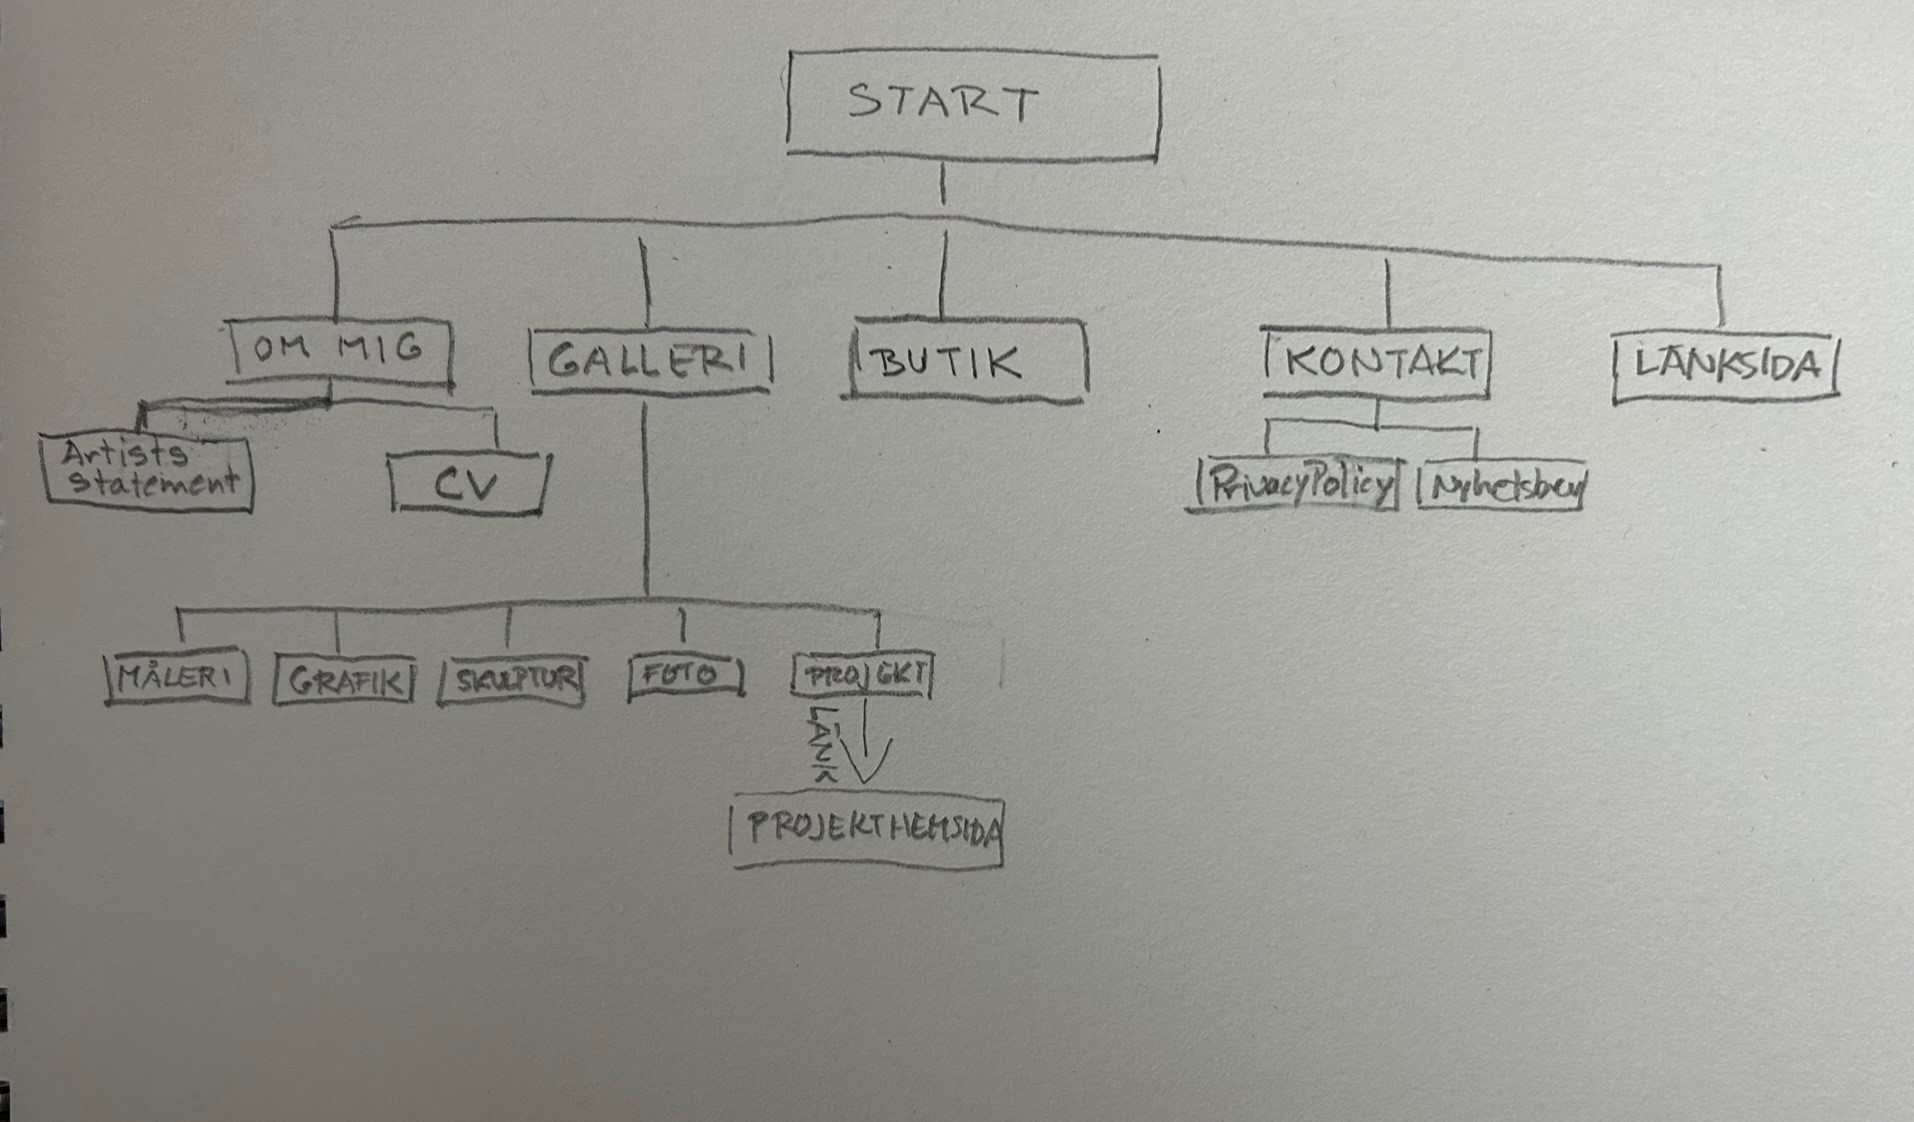 START
OM MIG
GALLERI
BUTIK
KONTAKT
LÄNKSIDA
Artists
Statement
CV
Privacy Policy
Nyhetsbrev
MÅLERI
GRAFIK
SKULPTUR
FOTO
PROJEKT
LÄNK
PROJEKTHEMSIDA